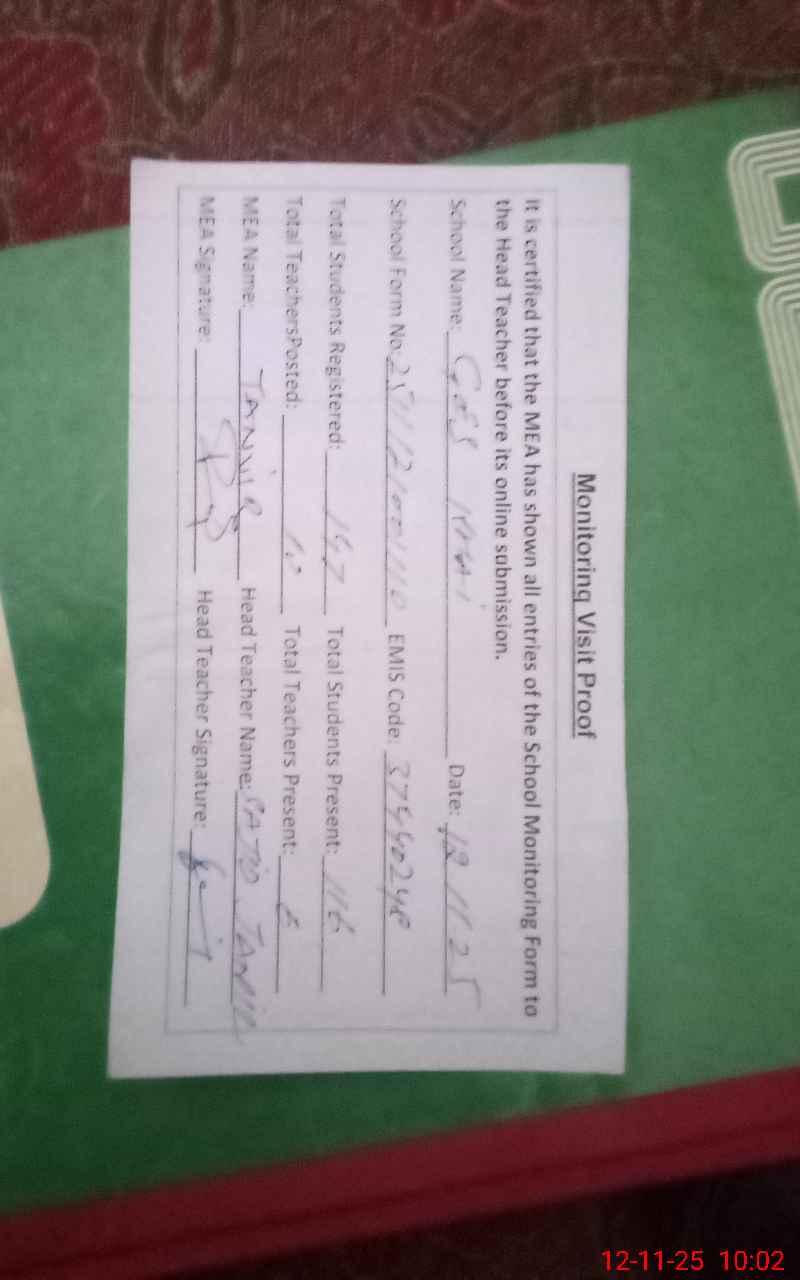 Monitoring Visit Proof
It is certified that the MEA has shown all entries of the School Monitoring Form to
the Head Teacher before its online submission.
School Name: GES Date: 12 11 25
School Form No: EMIS Code: 37440248
Total Students Registered: 147 Total Students Present: 116
Total TeachersPosted: 10 Total Teachers Present:
MEA Name: TANVIR Head Teacher Name:
MEA Signature: Head Teacher Signature:
12-11-25 10:02